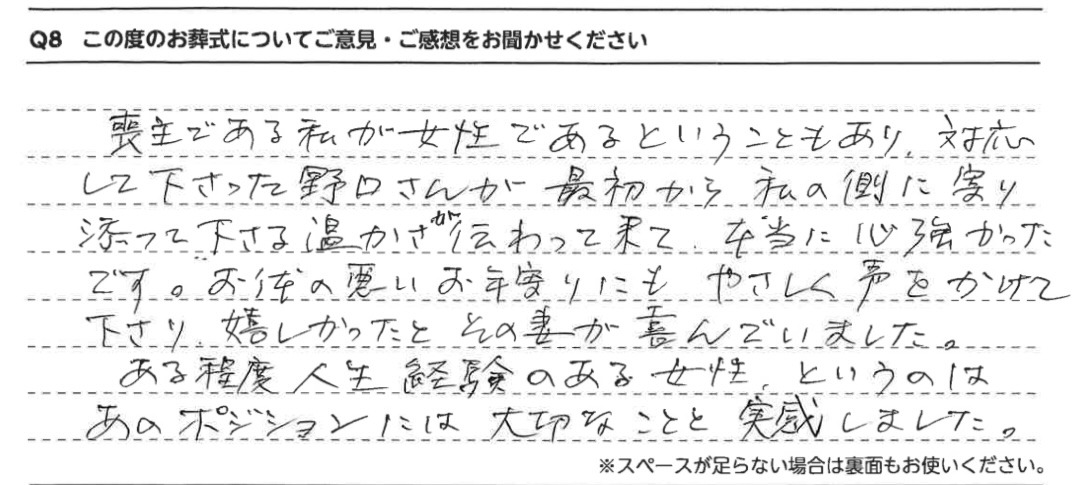 Q8 この度のお葬式についてご意見・ご感想をお聞かせください
喪主である私が女性であるということもあり、対応
して下さった野口さんが最初から私の側に寄り
添って下さる温かさが伝わって来て、本当に心強かった
です。お体の悪いお年寄りにもやさしく声をかけて
下さり、嬉しかったとその妻が喜んでいました。
ある程度人生経験のある女性、というのは
あのポジションには大切なことと実感しました。
※スペースが足らない場合は裏面もお使いください。